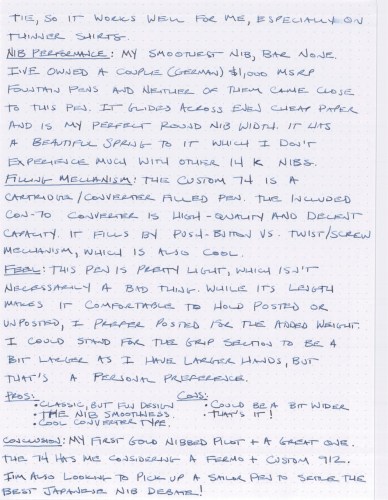 TIE, SO IT WORKS WELL FOR ME, ESPECIALLY ON
THINNER SHIRTS.
NIB PERFORMANCE: MY SMOOTHEST NIB, BAR NONE.
I'VE OWNED A COUPLE (GERMAN) $1,000 MSRP
FOUNTAIN PENS AND NEITHER OF THEM CAME CLOSE
TO THIS PEN. IT GLIDES ACROSS EVEN CHEAP PAPER
AND IS MY PERFECT ROUND NIB WIDTH. IT HAS
A BEAUTIFUL SPRING TO IT WHICH I DON'T
EXPERIENCE MUCH WITH OTHER 14 K NIBS.
FILLING MECHANISM: THE CUSTOM 74 IS A
CARTRIDGE/CONVERTER FILLED PEN. THE INCLUDED
CON-70 CONVERTER IS HIGH-QUALITY AND DECENT
CAPACITY. IT FILLS BY PUSH-BUTTON VS. TWIST/SCREW
MECHANISM, WHICH IS ALSO COOL.
FEEL: THIS PEN IS PRETTY LIGHT, WHICH ISN'T
NECESSARILY A BAD THING. WHILE ITS LENGTH
MAKES IT COMFORTABLE TO HOLD POSTED OR
UNPOSTED, I PREFER POSTED FOR THE ADDED WEIGHT.
I COULD STAND FOR THE GRIP SECTION TO BE A
BIT LARGER AS I HAVE LARGER HANDS, BUT
THAT'S A PERSONAL PREFERENCE.
PROS: CONS:
• CLASSIC, BUT FUN DESIGN • COULD BE A BIT WIDER
• THE NIB SMOOTHNESS. • THAT'S IT!
• COOL CONVERTER TYPE.
CONCLUSION: MY FIRST GOLD NIBBED PILOT + A GREAT ONE.
THE 74 HAS ME CONSIDERING A FERMO + CUSTOM 912.
I'M ALSO LOOKING TO PICK UP A SAILOR PEN TO SETTLE THE
BEST JAPANESE NIB DEBATE!